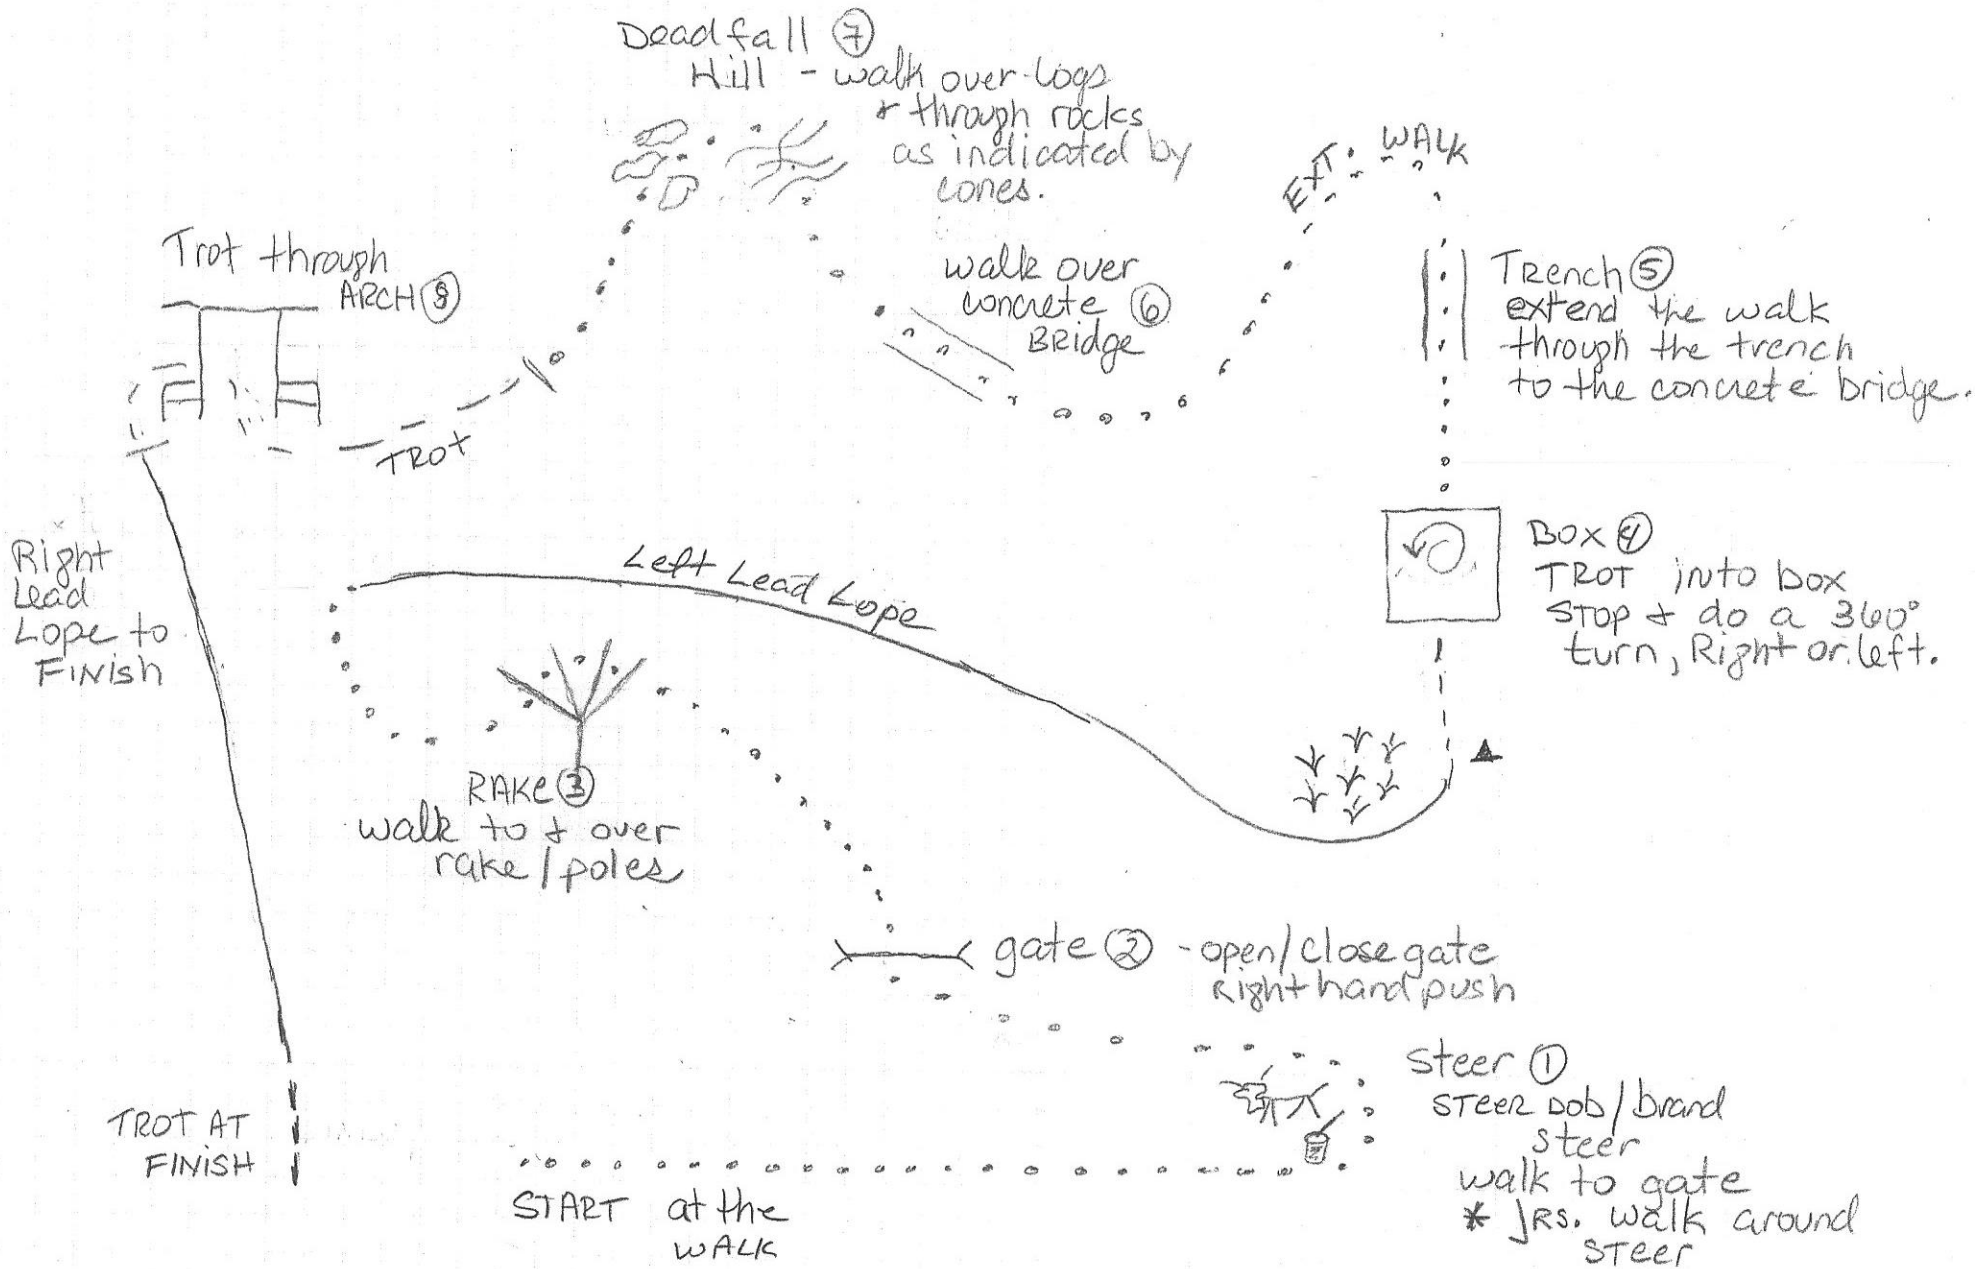 Deadfall ⑦
Hill - walk over logs
+ through rocks
as indicated by
cones.
EXT. WALK
Trot through
ARCH ⑧
walk over
concrete ⑥
BRidge
TRench ⑤
extend the walk
through the trench
to the concrete bridge.
TROT
Right
Lead
Lope to
FINish
Left Lead Lope
BOX ④
TROT into box
STOP + do a 360°
turn, Right or left.
RAKe ③
walk to + over
rake / poles
gate ② - open/close gate
Right hand push
Steer ①
STeeR DOb / brand
steer
walk to gate
* JRS. walk around
STeer
TROT AT
FINISH
START at the
WALK